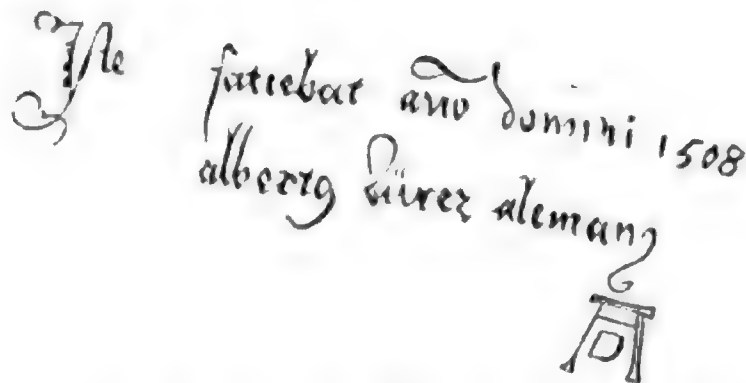 Iste fatiebat ano domini 1508
albertꝰ dürer alemanꝰ
AD